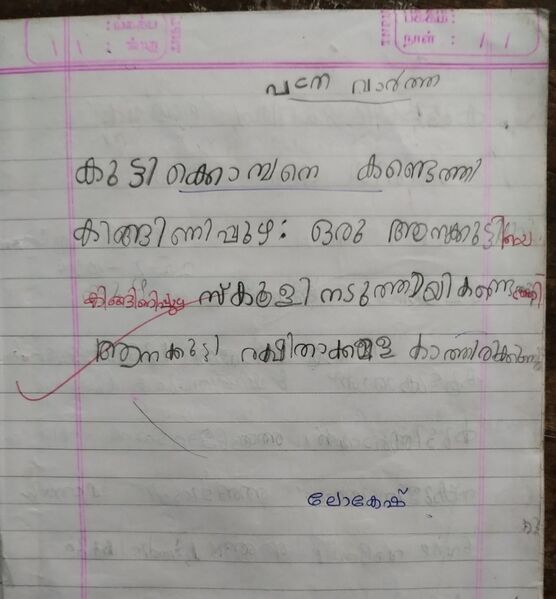 பக்கம் :
நாள் : / /
പഠന വാർത്ത
കുട്ടിക്കൊമ്പനെ കണ്ടെത്തി
കിങ്ങിണിപ്പുഴ: ഒരു ആനക്കുട്ടിയെ
കിങ്ങിണിപ്പുഴ സ്കൂളിനടുത്തായി കണ്ടെത്തി
ആനക്കുട്ടി രക്ഷിതാക്കളെ കാത്തിരിക്കുന്നു
ലോകേഷ്